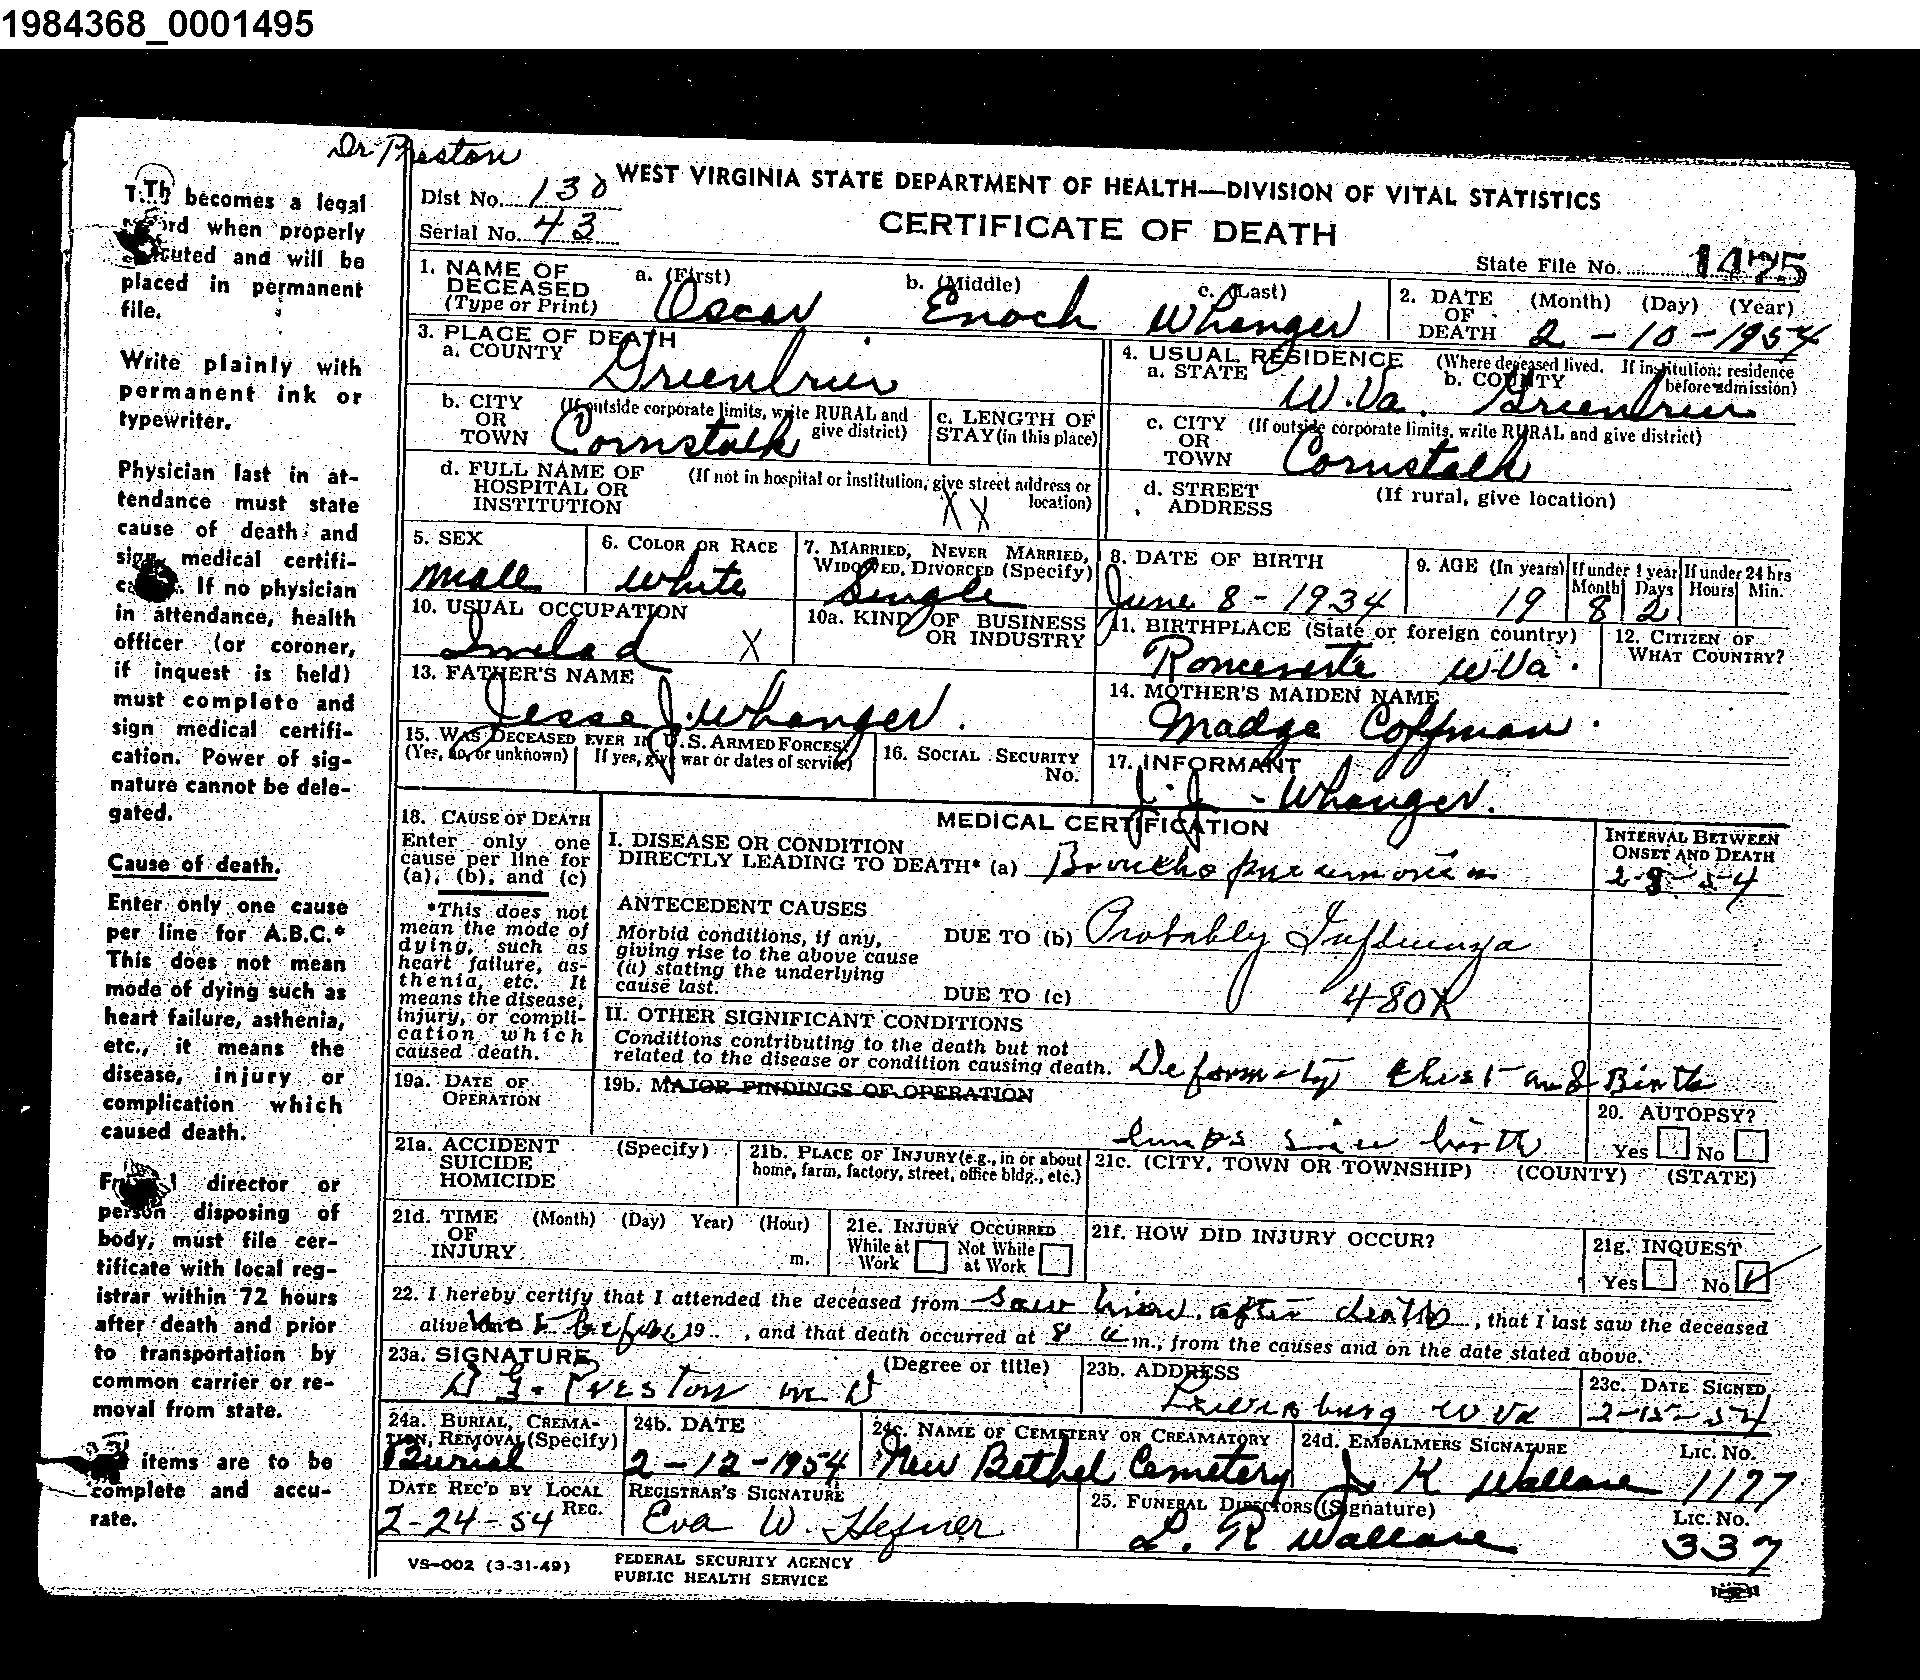 1984368_0001495
Dr Preston
WEST VIRGINIA STATE DEPARTMENT OF HEALTH—DIVISION OF VITAL STATISTICS
CERTIFICATE OF DEATH
Dist No. 130
Serial No. 43
State File No. 1475
1. NAME OF DECEASED (Type or Print) a. (First) Oscar b. (Middle) Enoch c. (Last) Whanger
2. DATE OF DEATH (Month) (Day) (Year) 2-10-1954
3. PLACE OF DEATH
a. COUNTY Greenbrier
b. CITY OR TOWN (If outside corporate limits, write RURAL and give district) Cornstalk
c. LENGTH OF STAY (in this place)
d. FULL NAME OF HOSPITAL OR INSTITUTION (If not in hospital or institution, give street address or location) XX
4. USUAL RESIDENCE (Where deceased lived. If institution: residence before admission)
a. STATE W.Va. b. COUNTY Greenbrier
c. CITY OR TOWN (If outside corporate limits, write RURAL and give district) Cornstalk
d. STREET ADDRESS (If rural, give location)
5. SEX male
6. COLOR OR RACE white
7. MARRIED, NEVER MARRIED, WIDOWED, DIVORCED (Specify) Single
8. DATE OF BIRTH June 8-1934
9. AGE (In years) 19 If under 1 year Month 8 Days 2 If under 24 hrs Hours Min.
10. USUAL OCCUPATION X
10a. KIND OF BUSINESS OR INDUSTRY
11. BIRTHPLACE (State or foreign country) Ronceverte W Va.
12. CITIZEN OF WHAT COUNTRY?
13. FATHER'S NAME Jesse J. Whanger.
14. MOTHER'S MAIDEN NAME Madge Coffman.
15. WAS DECEASED EVER IN U.S. ARMED FORCES?
(Yes, no, or unknown) If yes, give war or dates of service)
16. SOCIAL SECURITY No.
17. INFORMANT J. J. - Whanger.
MEDICAL CERTIFICATION
18. CAUSE OF DEATH
Enter only one cause per line for (a), (b), and (c)
*This does not mean the mode of dying, such as heart failure, asthenia, etc. It means the disease, injury, or complication which caused death.
I. DISEASE OR CONDITION
DIRECTLY LEADING TO DEATH* (a) Broncho pneumonia
INTERVAL BETWEEN ONSET AND DEATH 2-8-54
ANTECEDENT CAUSES
Morbid conditions, if any, giving rise to the above cause (a) stating the underlying cause last.
DUE TO (b) Probably Influenza
DUE TO (c) 480X
II. OTHER SIGNIFICANT CONDITIONS
Conditions contributing to the death but not related to the disease or condition causing death. Deformity chest and Birth
since birth
19a. DATE OF OPERATION
19b. MAJOR FINDINGS OF OPERATION
20. AUTOPSY? Yes No
21a. ACCIDENT SUICIDE HOMICIDE (Specify)
21b. PLACE OF INJURY (e.g., in or about home, farm, factory, street, office bldg., etc.)
21c. (CITY, TOWN OR TOWNSHIP) (COUNTY) (STATE)
21d. TIME OF INJURY (Month) (Day) Year) (Hour) m.
21e. INJURY OCCURRED While at Work Not While at Work
21f. HOW DID INJURY OCCUR?
21g. INQUEST Yes No
22. I hereby certify that I attended the deceased from saw him after death, that I last saw the deceased
alive on not before 19.., and that death occurred at 8 a m., from the causes and on the date stated above.
23a. SIGNATURE Preston M D (Degree or title)
23b. ADDRESS Lewisburg W Va
23c. DATE SIGNED 2-15-54
24a. BURIAL, CREMATION, REMOVAL (Specify) Burial
24b. DATE 2-12-1954
24c. NAME OF CEMETERY OR CREAMATORY New Bethel Cemetery
24d. EMBALMERS SIGNATURE J. K Wallace LIC. NO. 1177
DATE REC'D BY LOCAL REG. 2-24-54
REGISTRAR'S SIGNATURE Eva W. Hefner
25. FUNERAL DIRECTORS (Signature) L. R Wallace LIC. NO. 337
VS-002 (3-31-49)
FEDERAL SECURITY AGENCY
PUBLIC HEALTH SERVICE
becomes a legal
when properly
and will be
placed in permanent
file.
Write plainly with
permanent ink or
typewriter.
Physician last in at-
tendance must state
cause of death and
sign medical certifi-
If no physician
in attendance, health
officer (or coroner,
if inquest is held)
must complete and
sign medical certifi-
cation. Power of sig-
nature cannot be dele-
gated.
Cause of death.
Enter only one cause
per line for A.B.C.*
This does not mean
mode of dying such as
heart failure, asthenia,
etc., it means the
disease, injury or
complication which
caused death.
director or
person disposing of
body, must file cer-
tificate with local reg-
istrar within 72 hours
after death and prior
to transportation by
common carrier or re-
moval from state.
items are to be
complete and accu-
rate.